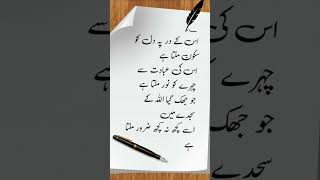 اس کے در پہ دل کو
سکون ملتا ہے
اس کی عبادت سے
چہرے کو نور ملتا ہے
جو جھک گیا اللہ کے
سجدے میں
اسے کچھ نہ کچھ ضرور ملتا
ہے